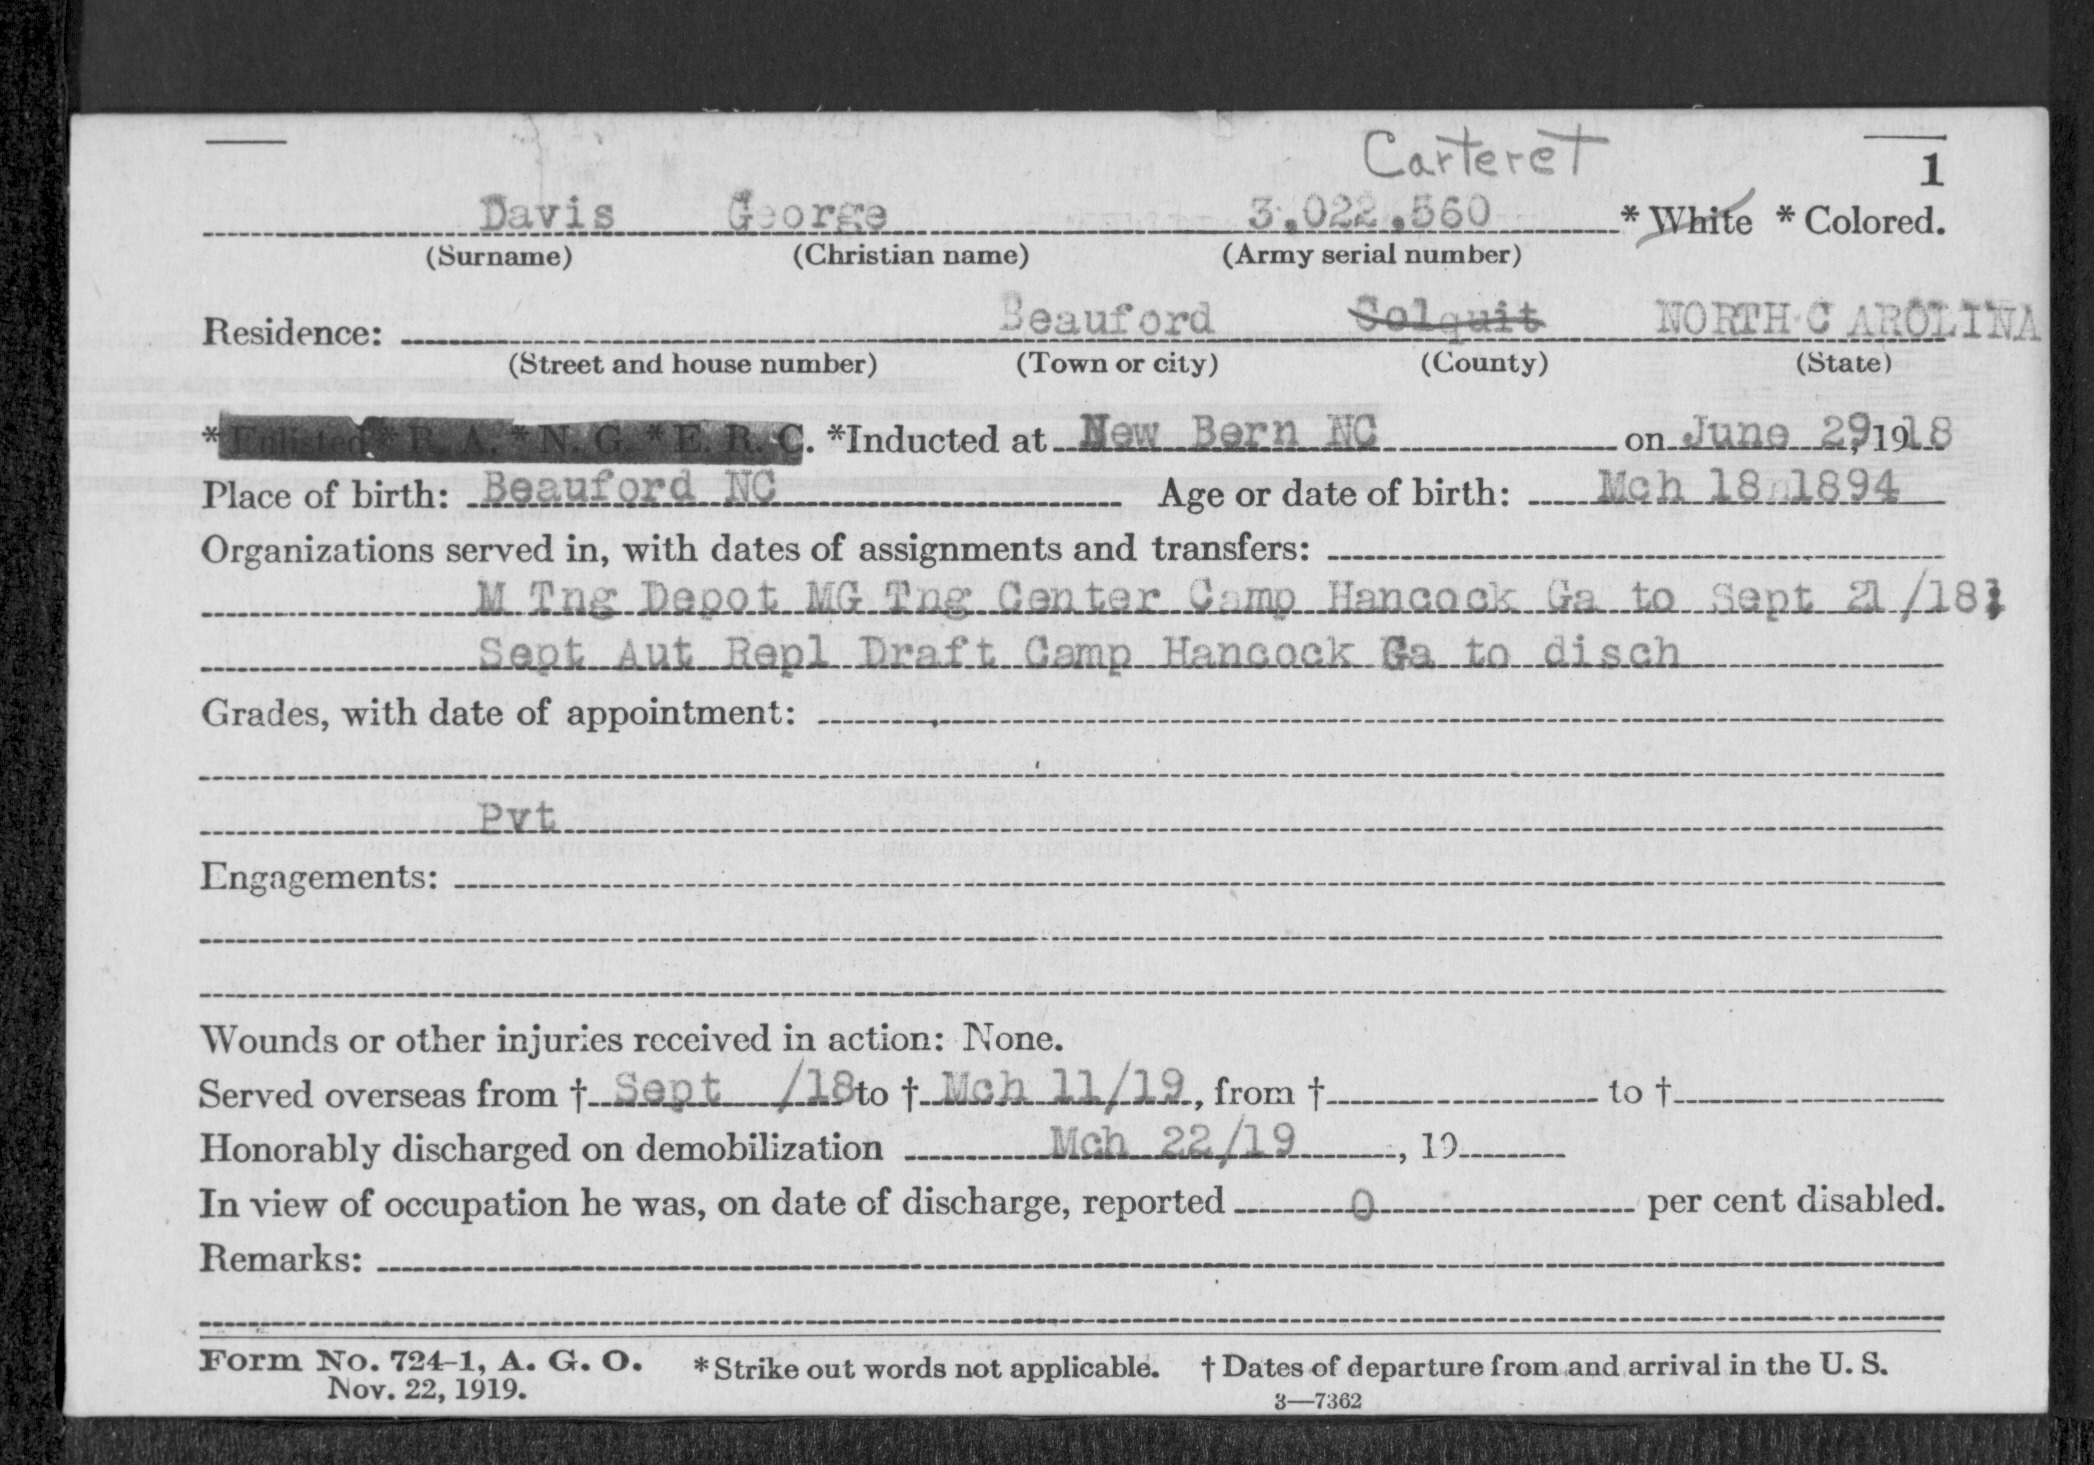 Carteret
1
Davis George 3,022,560 * White * Colored.
(Surname) (Christian name) (Army serial number)
Residence: Beauford Colquit NORTH CAROLINA
(Street and house number) (Town or city) (County) (State)
* Enlisted * R. A. * N. G. * E. R. C. *Inducted at New Bern NC on June 29, 1918
Place of birth: Beauford NC Age or date of birth: Mch 18 1894
Organizations served in, with dates of assignments and transfers:
M Tng Depot MG Tng Center Camp Hancock Ga to Sept 21/18;
Sept Aut Repl Draft Camp Hancock Ga to disch
Grades, with date of appointment:
Pvt
Engagements:
Wounds or other injuries received in action: None.
Served overseas from † Sept /18 to † Mch 11/19, from † to †
Honorably discharged on demobilization Mch 22/19, 19
In view of occupation he was, on date of discharge, reported 0 per cent disabled.
Remarks:
Form No. 724-1, A. G. O. * Strike out words not applicable. † Dates of departure from and arrival in the U. S.
Nov. 22, 1919.
3—7362